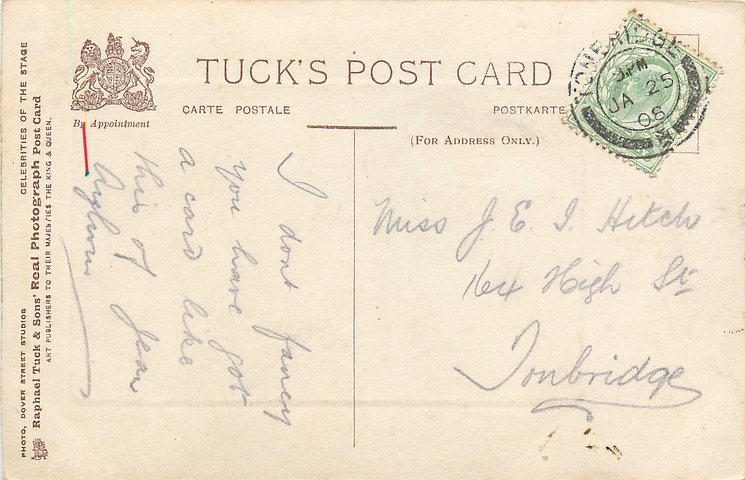 CELEBRITIES OF THE STAGE
PHOTO, DOVER STREET STUDIOS
Raphael Tuck & Sons' Real Photograph Post Card
ART PUBLISHERS TO THEIR MAJESTIES THE KING & QUEEN.
By Appointment
TUCK'S POST CARD
CARTE POSTALE
POSTKARTE
(FOR ADDRESS ONLY.)
TONBRIDGE
JA 25
08
I dont fancy
you have got
a card like
this of Jean
Miss J. E. I. Hitch
164 High St
Tonbridge